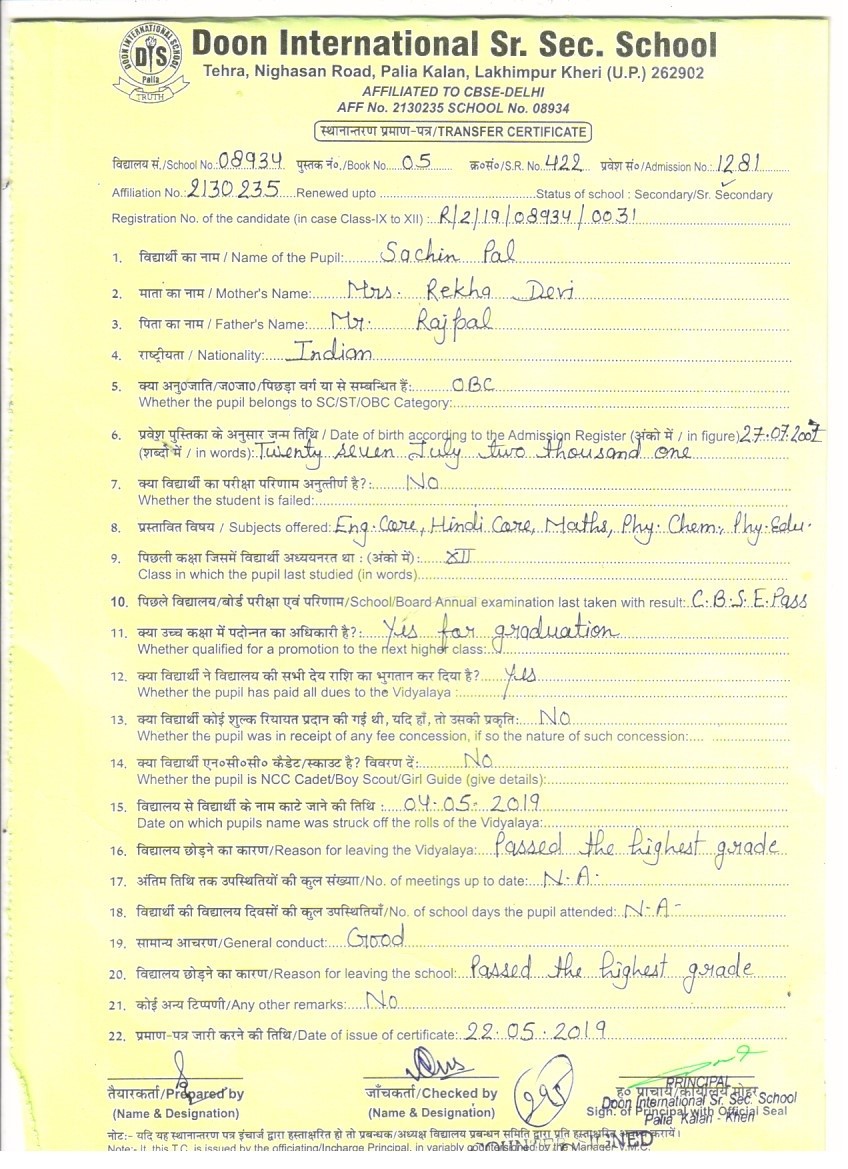 DOON INTERNATIONAL SCHOOL
DIS
Palia
TRUTH
Doon International Sr. Sec. School
Tehra, Nighasan Road, Palia Kalan, Lakhimpur Kheri (U.P.) 262902
AFFILIATED TO CBSE-DELHI
AFF No. 2130235 SCHOOL No. 08934
स्थानान्तरण प्रमाण-पत्र/TRANSFER CERTIFICATE
विद्यालय सं./School No.: 08934 पुस्तक नं०./Book No. 05 क्र०सं०/S.R. No. 422 प्रवेश सं०/Admission No.: 1281
Affiliation No.: 2130235 Renewed upto Status of school : Secondary/Sr. Secondary
Registration No. of the candidate (in case Class-IX to XII) : R/2/19/08934/0031
1. विद्यार्थी का नाम / Name of the Pupil: Sachin Pal
2. माता का नाम / Mother's Name: Mrs. Rekha Devi
3. पिता का नाम / Father's Name: Mr. Rajpal
4. राष्ट्रीयता / Nationality: Indian
5. क्या अनु०जाति/ज०जा०/पिछड़ा वर्ग या से सम्बन्धित हैः OBC
Whether the pupil belongs to SC/ST/OBC Category:
6. प्रवेश पुस्तिका के अनुसार जन्म तिथि / Date of birth according to the Admission Register (अंको में / in figure) 27.07.2001
(शब्दों में / in words): Twenty seven July two thousand one
7. क्या विद्यार्थी का परीक्षा परिणाम अनुत्तीर्ण है?: No
Whether the student is failed:
8. प्रस्तावित विषय / Subjects offered: Eng. Core, Hindi Core, Maths, Phy. Chem., Phy. Edu.
9. पिछली कक्षा जिसमें विद्यार्थी अध्ययनरत था : (अंको में): XII
Class in which the pupil last studied (in words)
10. पिछले विद्यालय/बोर्ड परीक्षा एवं परिणाम/School/Board Annual examination last taken with result: C.B.S.E. Pass
11. क्या उच्च कक्षा में पदोन्नत का अधिकारी है?: Yes for graduation
Whether qualified for a promotion to the next higher class:
12. क्या विद्यार्थी ने विद्यालय की सभी देय राशि का भुगतान कर दिया है? Yes
Whether the pupil has paid all dues to the Vidyalaya :
13. क्या विद्यार्थी कोई शुल्क रियायत प्रदान की गई थी, यदि हाँ, तो उसकी प्रकृति: No
Whether the pupil was in receipt of any fee concession, if so the nature of such concession:
14. क्या विद्यार्थी एन०सी०सी० कैडेट/स्काउट है? विवरण दें: No
Whether the pupil is NCC Cadet/Boy Scout/Girl Guide (give details):
15. विद्यालय से विद्यार्थी के नाम काटे जाने की तिथि : 04.05.2019
Date on which pupils name was struck off the rolls of the Vidyalaya:
16. विद्यालय छोड़ने का कारण/Reason for leaving the Vidyalaya: Passed the highest grade
17. अंतिम तिथि तक उपस्थितियों की कुल संख्या/No. of meetings up to date: N.A.
18. विद्यार्थी की विद्यालय दिवसों की कुल उपस्थितियाँ/No. of school days the pupil attended: N.A-
19. सामान्य आचरण/General conduct: Good
20. विद्यालय छोड़ने का कारण/Reason for leaving the school: Passed the highest grade
21. कोई अन्य टिप्पणी/Any other remarks: No
22. प्रमाण-पत्र जारी करने की तिथि/Date of issue of certificate: 22.05.2019
तैयारकर्ता/Prepared by जाँचकर्ता/Checked by ह० प्राचार्य/कार्यालय मोहर
(Name & Designation) (Name & Designation) Sign. of Principal with Official Seal
PRINCIPAL
Doon International Sr. Sec. School
Palia Kalan - Kheri
नोट:- यदि यह स्थानान्तरण पत्र इंचार्ज द्वारा हस्ताक्षरित हो तो प्रबन्धक/अध्यक्ष विद्यालय प्रबन्धन समिति द्वारा प्रति हस्ताक्षरित कराया जायें।
Note:- It, this T.C. is issued by the officiating/Incharge Principal, in variably countersigned by the Manager V.M.C.